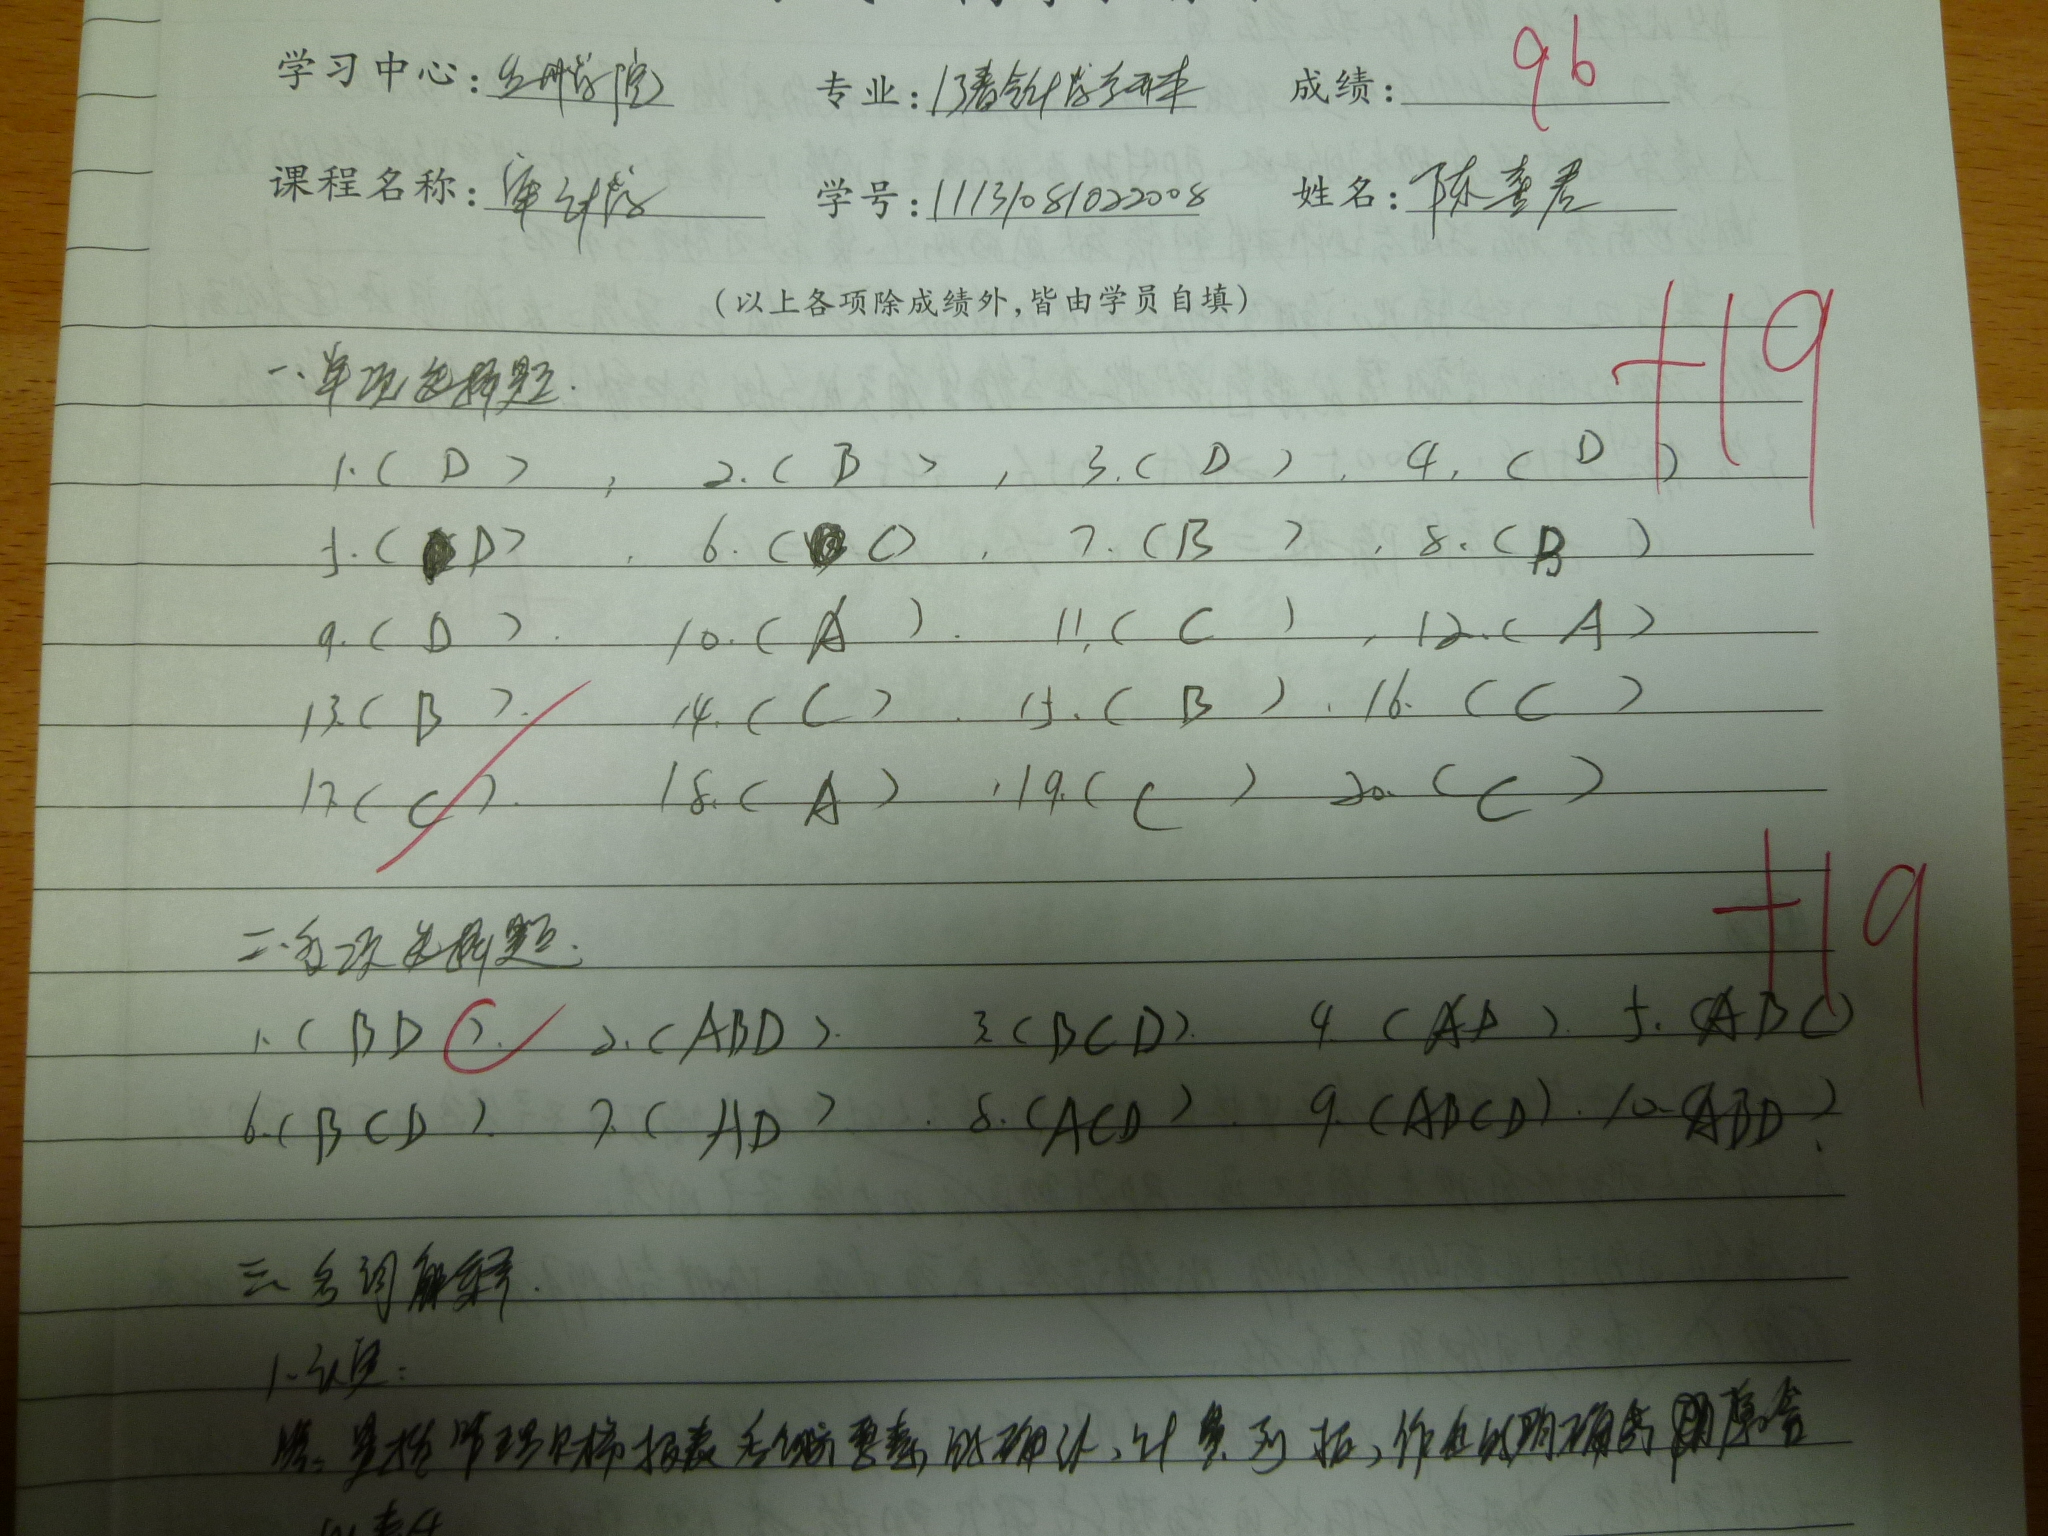 学习中心: 专业:13春会计学专升本 成绩:96
课程名称:审计学 学号:11131081022008 姓名:陈
(以上各项除成绩外,皆由学员自填)
+19
一、单项选择题.
1.( D ), 2.( B ), 3.( D ). 4.( D )
5.( D ). 6.( C ), 7.( B ). 8.( B )
9.( D ). 10.( A ). 11.( C ), 12.( A )
13.( B ). 14.( C ). 15.( B ). 16.( C )
17.( C ). 18.( A ), 19.( C ) 20.( C )
+19
二、多项选择题.
1.( BD ). 2.(ABD). 3.(BCD). 4.(AD). 5.(ABC)
6.(BCD). 7.( AD ). 8.(ACD). 9.(ABCD). 10.(ABD).
三、名词解释.
1.认定:
答:是指管理层对财务报表各组成要素的确认、计量、列报,作出的明确或隐含